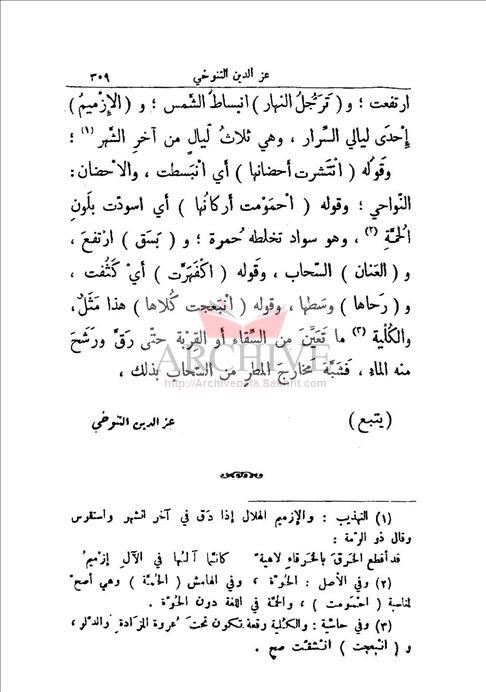 عز الدين التنوخي ٣٠٩
ارتفعت ؛ و ( تَرَجُّلُ النهار ) انبساطُ الشمس ؛ و ( الإِزْمِيمُ )
إِحْدَى ليالي السِّرار ، وهي ثلاثُ ليالٍ من آخرِ الشَّهر (١) ؛
وقَولُه ( انْتَشَرت أحضانها ) أي انْبَسطت ، والأحضان :
النَّواحي ؛ وقوله ( احْمَوْمت أركانُها ) أي اسودّت بلَونِ
الحُمَّةِ (٢) ، وهو سواد تخلطه حُمرة ؛ و ( بَسَق ) ارتفعَ ،
و ( العَنان ) السّحاب ، وقَوله ( اكْفَهَرَّت ) أيْ كَثُفت ،
و ( رَحاها ) وسَطها ، وقوله ( انْبَعجت كُلاها ) هذا مَثَلٌ ،
والكُلْية (٣) ما تَعَيَّنَ من السِّقاءِ أو القِرْبة حتّى رَقَّ ورَشَحَ
منه الماءُ ، فشبَّهَ مَخارجَ المطرِ من السّحابِ بذلك ،
ARCHIVE
http://Archivebeta.Sakhrit.com
( يتبع ) عز الدين التنوخي
(١) التهذيب : والإزميم الهلال إذا دَق في آخر الشهر واستقوس
وقال ذو الرمّة :
قد أقطع الخَرقَ بالخَرقاءِ لاهيةً كأنّما آلُها في الآلِ إزْمِيمُ
(٢) وفي الأصل : الحُوّة ، وفي الهامش ( الحُمّة ) وهي أصحّ
لمناسبة ( احْمَومت ) ، والحمّة في اللغة دون الحُوّة .
(٣) وفي حاشية : والكُلية رقعة تكون تحتَ عُروة المزادة والدلو ،
و ( انبعجت ) انشقّت صح .